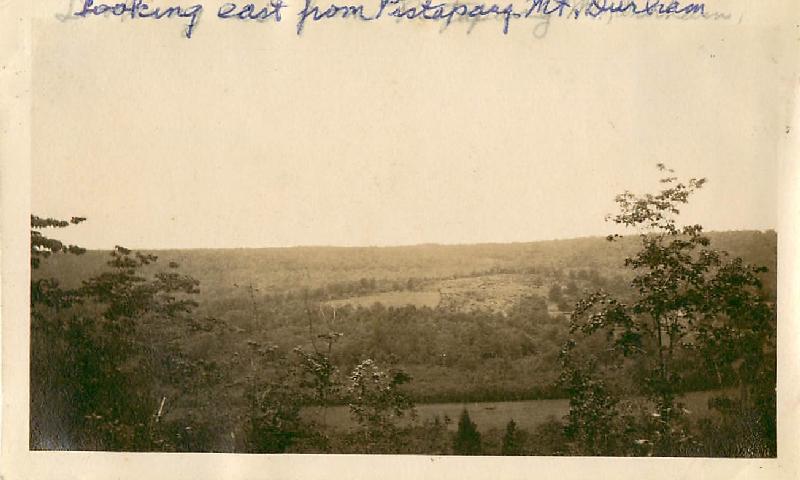 Looking east from Pistapaug Mt. Durham